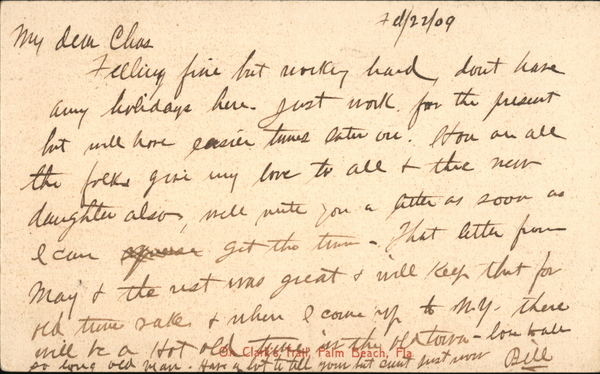 Feb/22/09
My dear Chas
Felling fine but working hard, dont have
any holidays here. Just work for the present
but will have easier times later on. How are all
the folks give my love to all & the new
daughter also, will write you a letter as soon as
I can get the time - That letter from
May & the rest was great & will keep that for
old time sake & when I come up to N.Y. there
will be a Hot old time in the old town - love to all
On Clark's Trail, Palm Beach, Fla.
so long old man. Have a lot to tell you but cant just now Bill